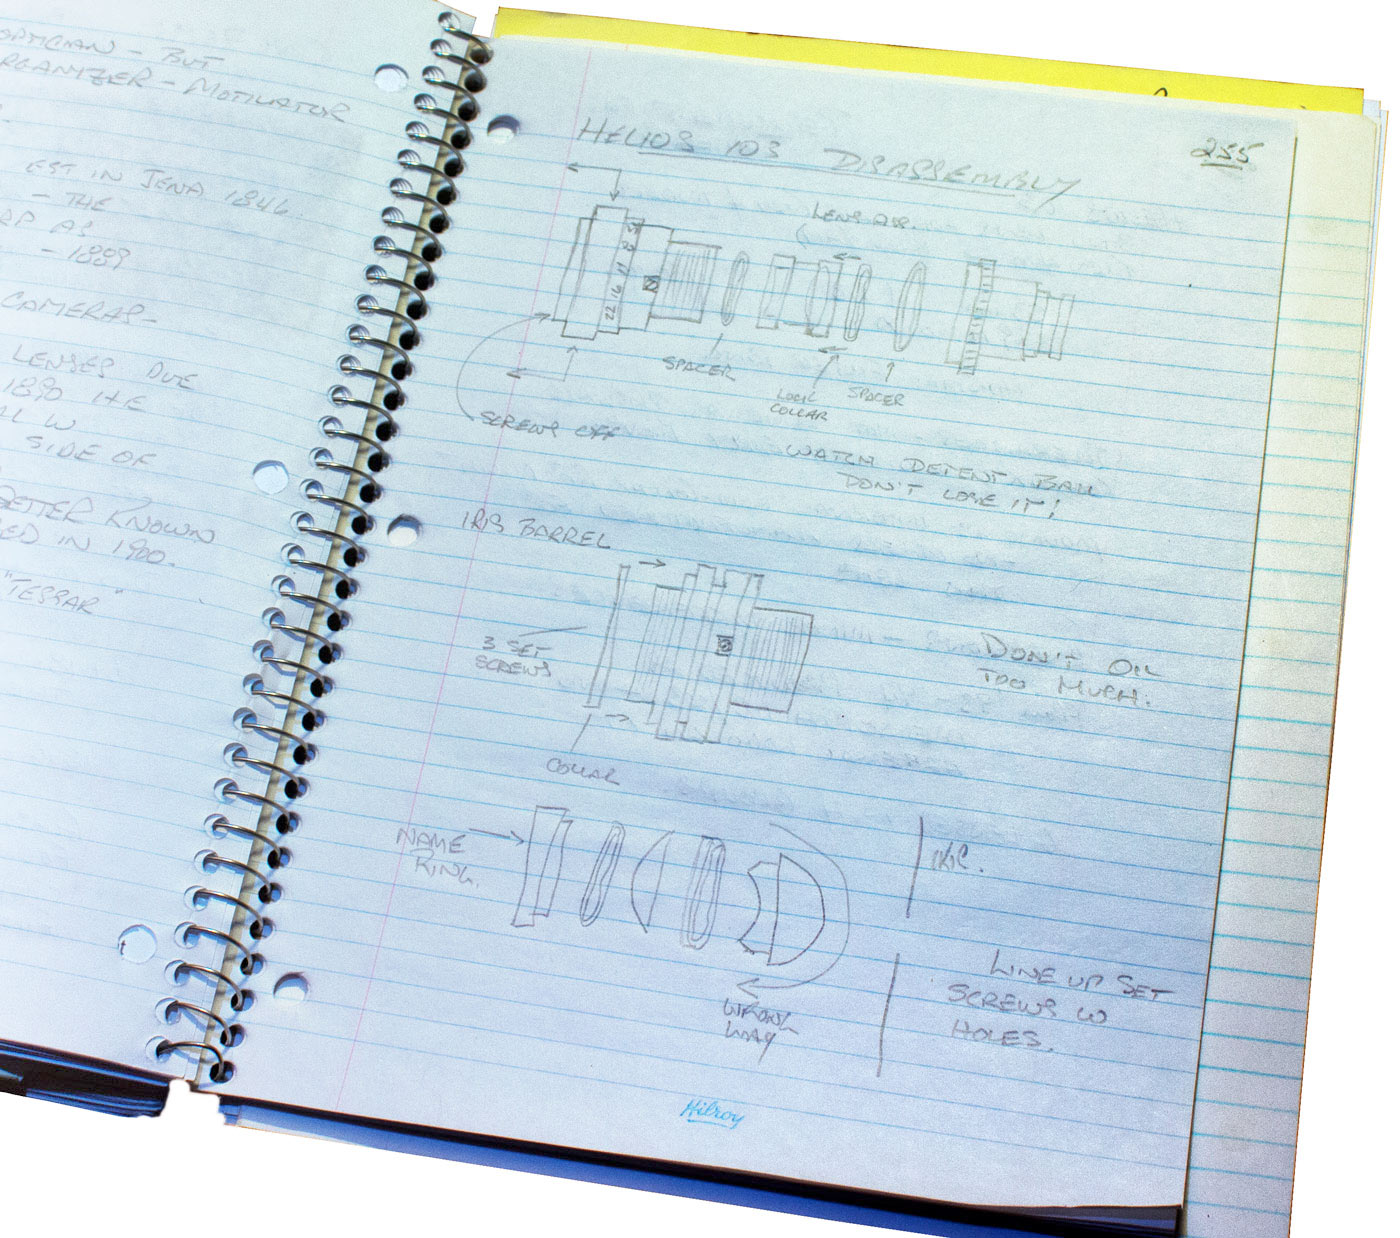 OPTICIAN - BUT
ORGANIZER - MOTIVATOR
EST IN JENA 1846
- THE
AS
- 1889
CAMERAS -
LENSES DUE
1890 HE
W
SIDE OF
BETTER KNOWN
IN 1900.
"TESSAR"
HELIOS 103 DISASSEMBLY
255
LENS ASS.
22 16 11 8
SPACER
LOCK
COLLAR
SPACER
SCREWS OFF
WATCH DETENT BALL
DON'T LOSE IT!
IRIS BARREL
3 SET
SCREWS
COLLAR
DON'T OIL
TOO MUCH.
NAME
RING.
WRONG
WAY
LINE UP SET
SCREWS W
HOLES.
Hilroy